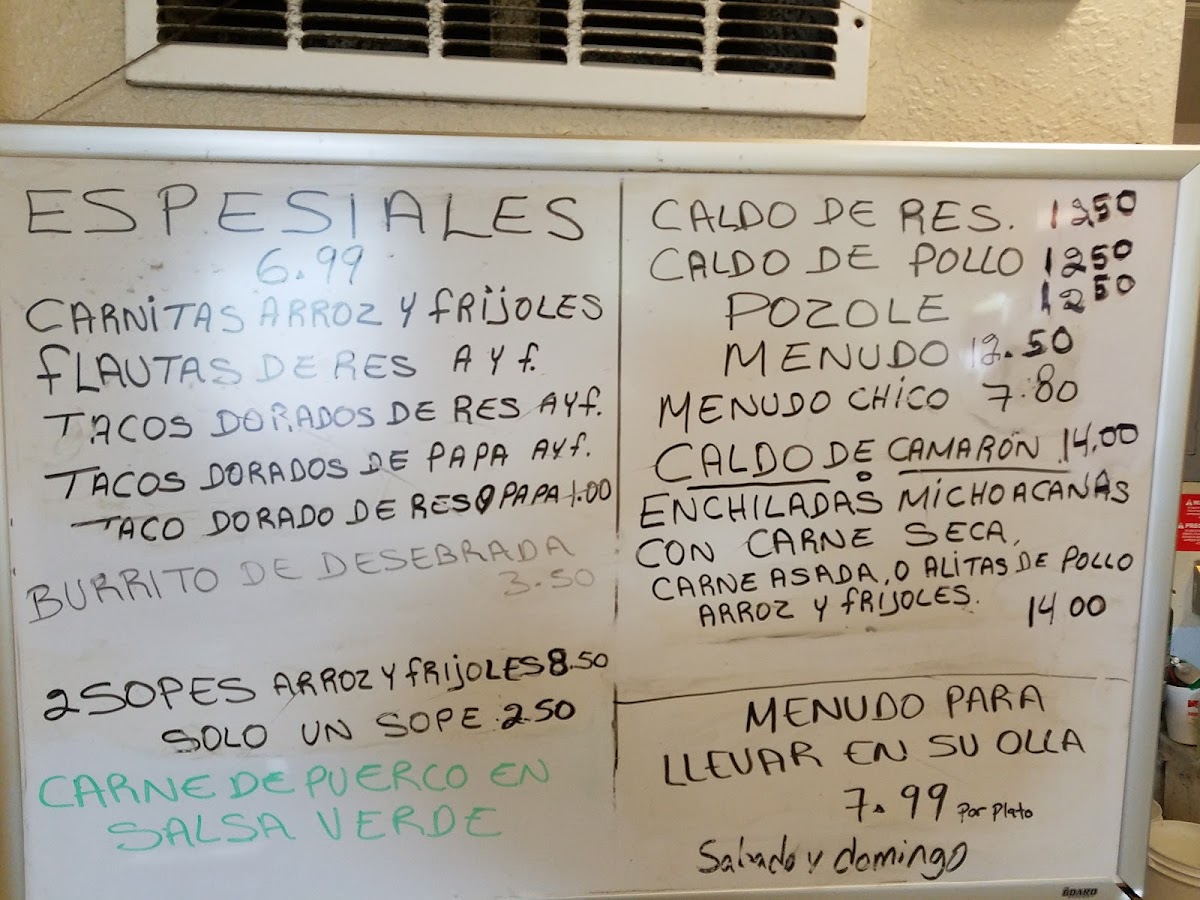 ESPESIALES
6.99
CARNITAS ARROZ Y FRIJOLES
FLAUTAS DE RES A Y F.
TACOS DORADOS DE RES A Y F.
TACOS DORADOS DE PAPA A Y F.
TACO DORADO DE RES O PAPA 1.00
BURRITO DE DESEBRADA
3.50
2 SOPES ARROZ Y FRIJOLES 8.50
SOLO UN SOPE 2.50
CARNE DE PUERCO EN
SALSA VERDE
CALDO DE RES. 1250
CALDO DE POLLO 1250
POZOLE 1250
MENUDO 12.50
MENUDO CHICO 7.80
CALDO DE CAMARÓN 14.00
ENCHILADAS MICHOACANAS
CON CARNE SECA,
CARNE ASADA, O ALITAS DE POLLO
ARROZ Y FRIJOLES. 14 00
MENUDO PARA
LLEVAR EN SU OLLA
7.99 Por Plato
Sabado y domingo